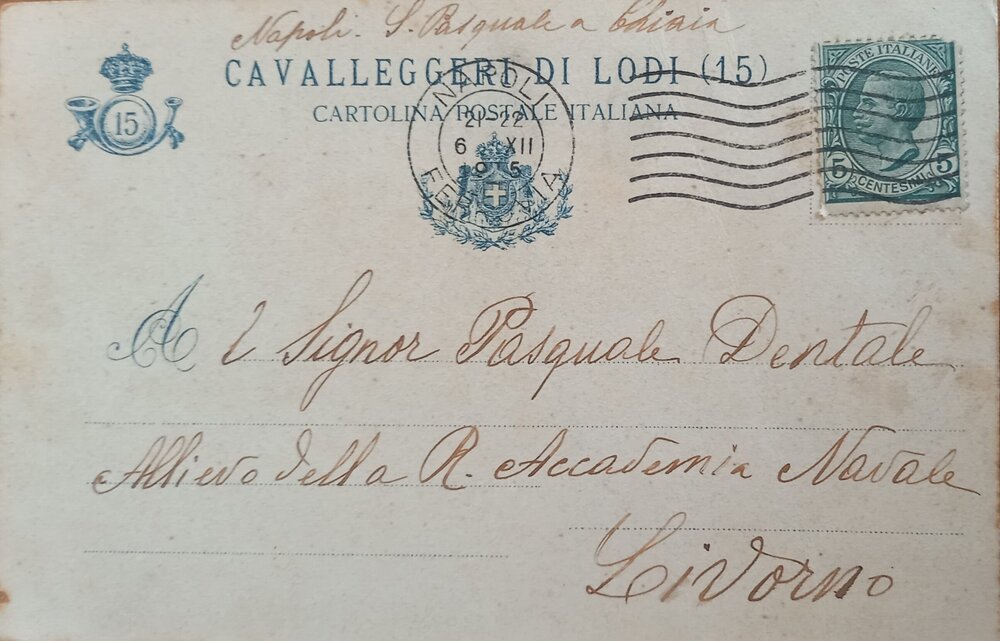 Napoli. S. Pasquale a Chiaia
CAVALLEGGERI DI LODI (15)
CARTOLINA POSTALE ITALIANA
15
NAPOLI
21-22
6 XII
FERROVIA
POSTE ITALIANE
5 5
CENTESIMI
Al Signor Pasquale Dentale
Allievo della R. Accademia Navale
Livorno